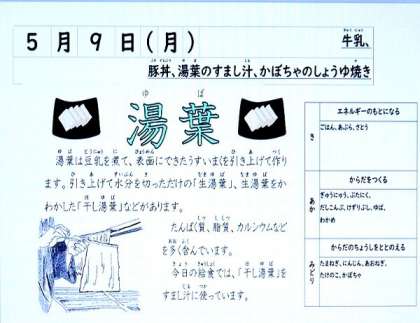 5月9日(月)
牛乳、
豚丼、湯葉のすまし汁、かぼちゃのしょうゆ焼き
湯葉
湯葉は豆乳を煮て、表面にできたうすいまくを引き上げて作り
ます。引き上げて水分を切っただけの「生湯葉」、生湯葉をか
わかした「干し湯葉」などがあります。
たんぱく質、脂質、カルシウムなど
を多く含んでいます。
今日の給食では、「干し湯葉」を
すまし汁に使っています。
き
エネルギーのもとになる
ごはん、あぶら、さとう
あか
からだをつくる
ぎゅうにゅう、ぶたにく、
だしこんぶ、けずりぶし、ゆば、
わかめ
みどり
からだのちょうしをととのえる
たまねぎ、にんじん、あおねぎ、
たけのこ、かぼちゃ